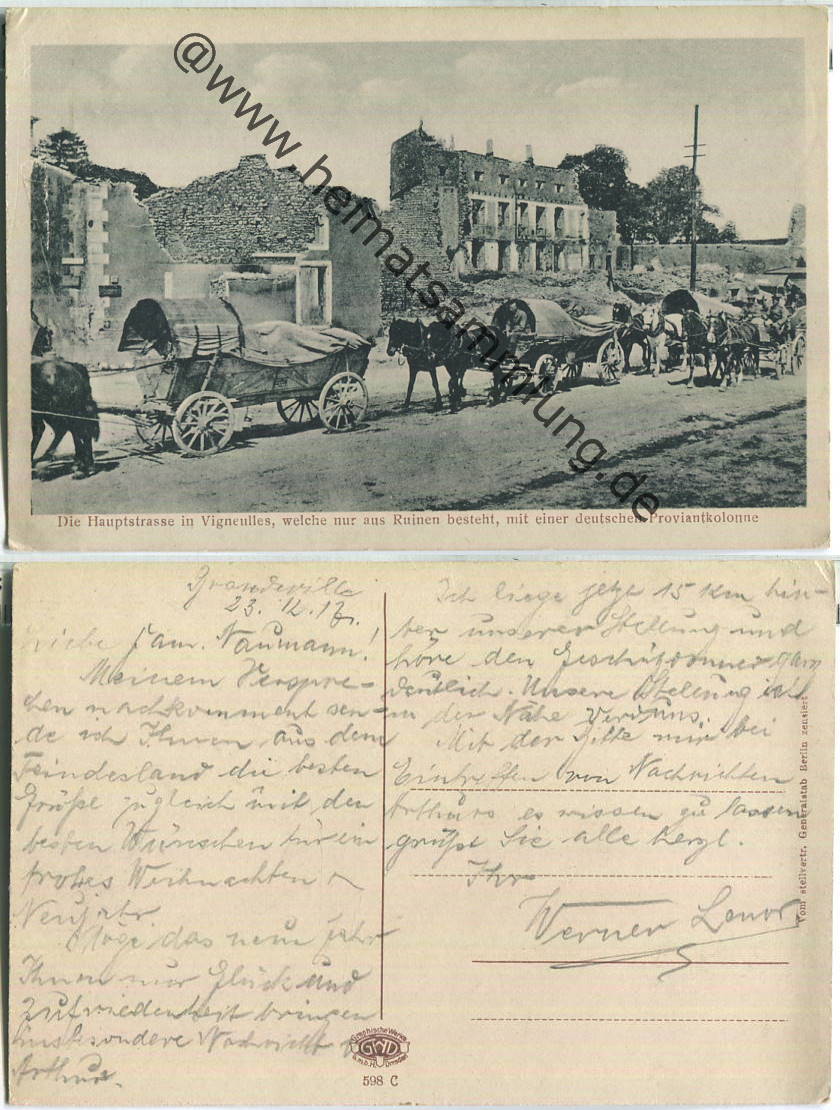 @www.heimatsammlung.de
Die Hauptstrasse in Vigneulles, welche nur aus Ruinen besteht, mit einer deutschen Proviantkolonne
Grandeville
23. 12. 17.
Liebe Fam. Naumann!
Meinem Verspre-
chen nachkommend sen-
de ich Ihnen aus dem
Feindesland die besten
Grüße zugleich mit den
besten Wünschen für ein
frohes Weihnachten
Neujahr
Möge das neue Jahr
Ihnen nur Glück und
Zufriedenheit bringen
insbesondere Nachricht v
Arthur.
Ich liege jetzt 15 km hin-
ter unserer Stellung und
höre den ganz
deutlich. Unsere Stellung ist
in der Nähe Verduns.
Mit der Bitte mir bei
Eintreffen von Nachrichten
Arthurs es wissen zu lassen
grüßt Sie alle herzl.
Ihr
Werner
Vom stellvertr. Generalstab Berlin zensiert
Graphische Werke
GWD
G.m.b.H. Dresden
598 C